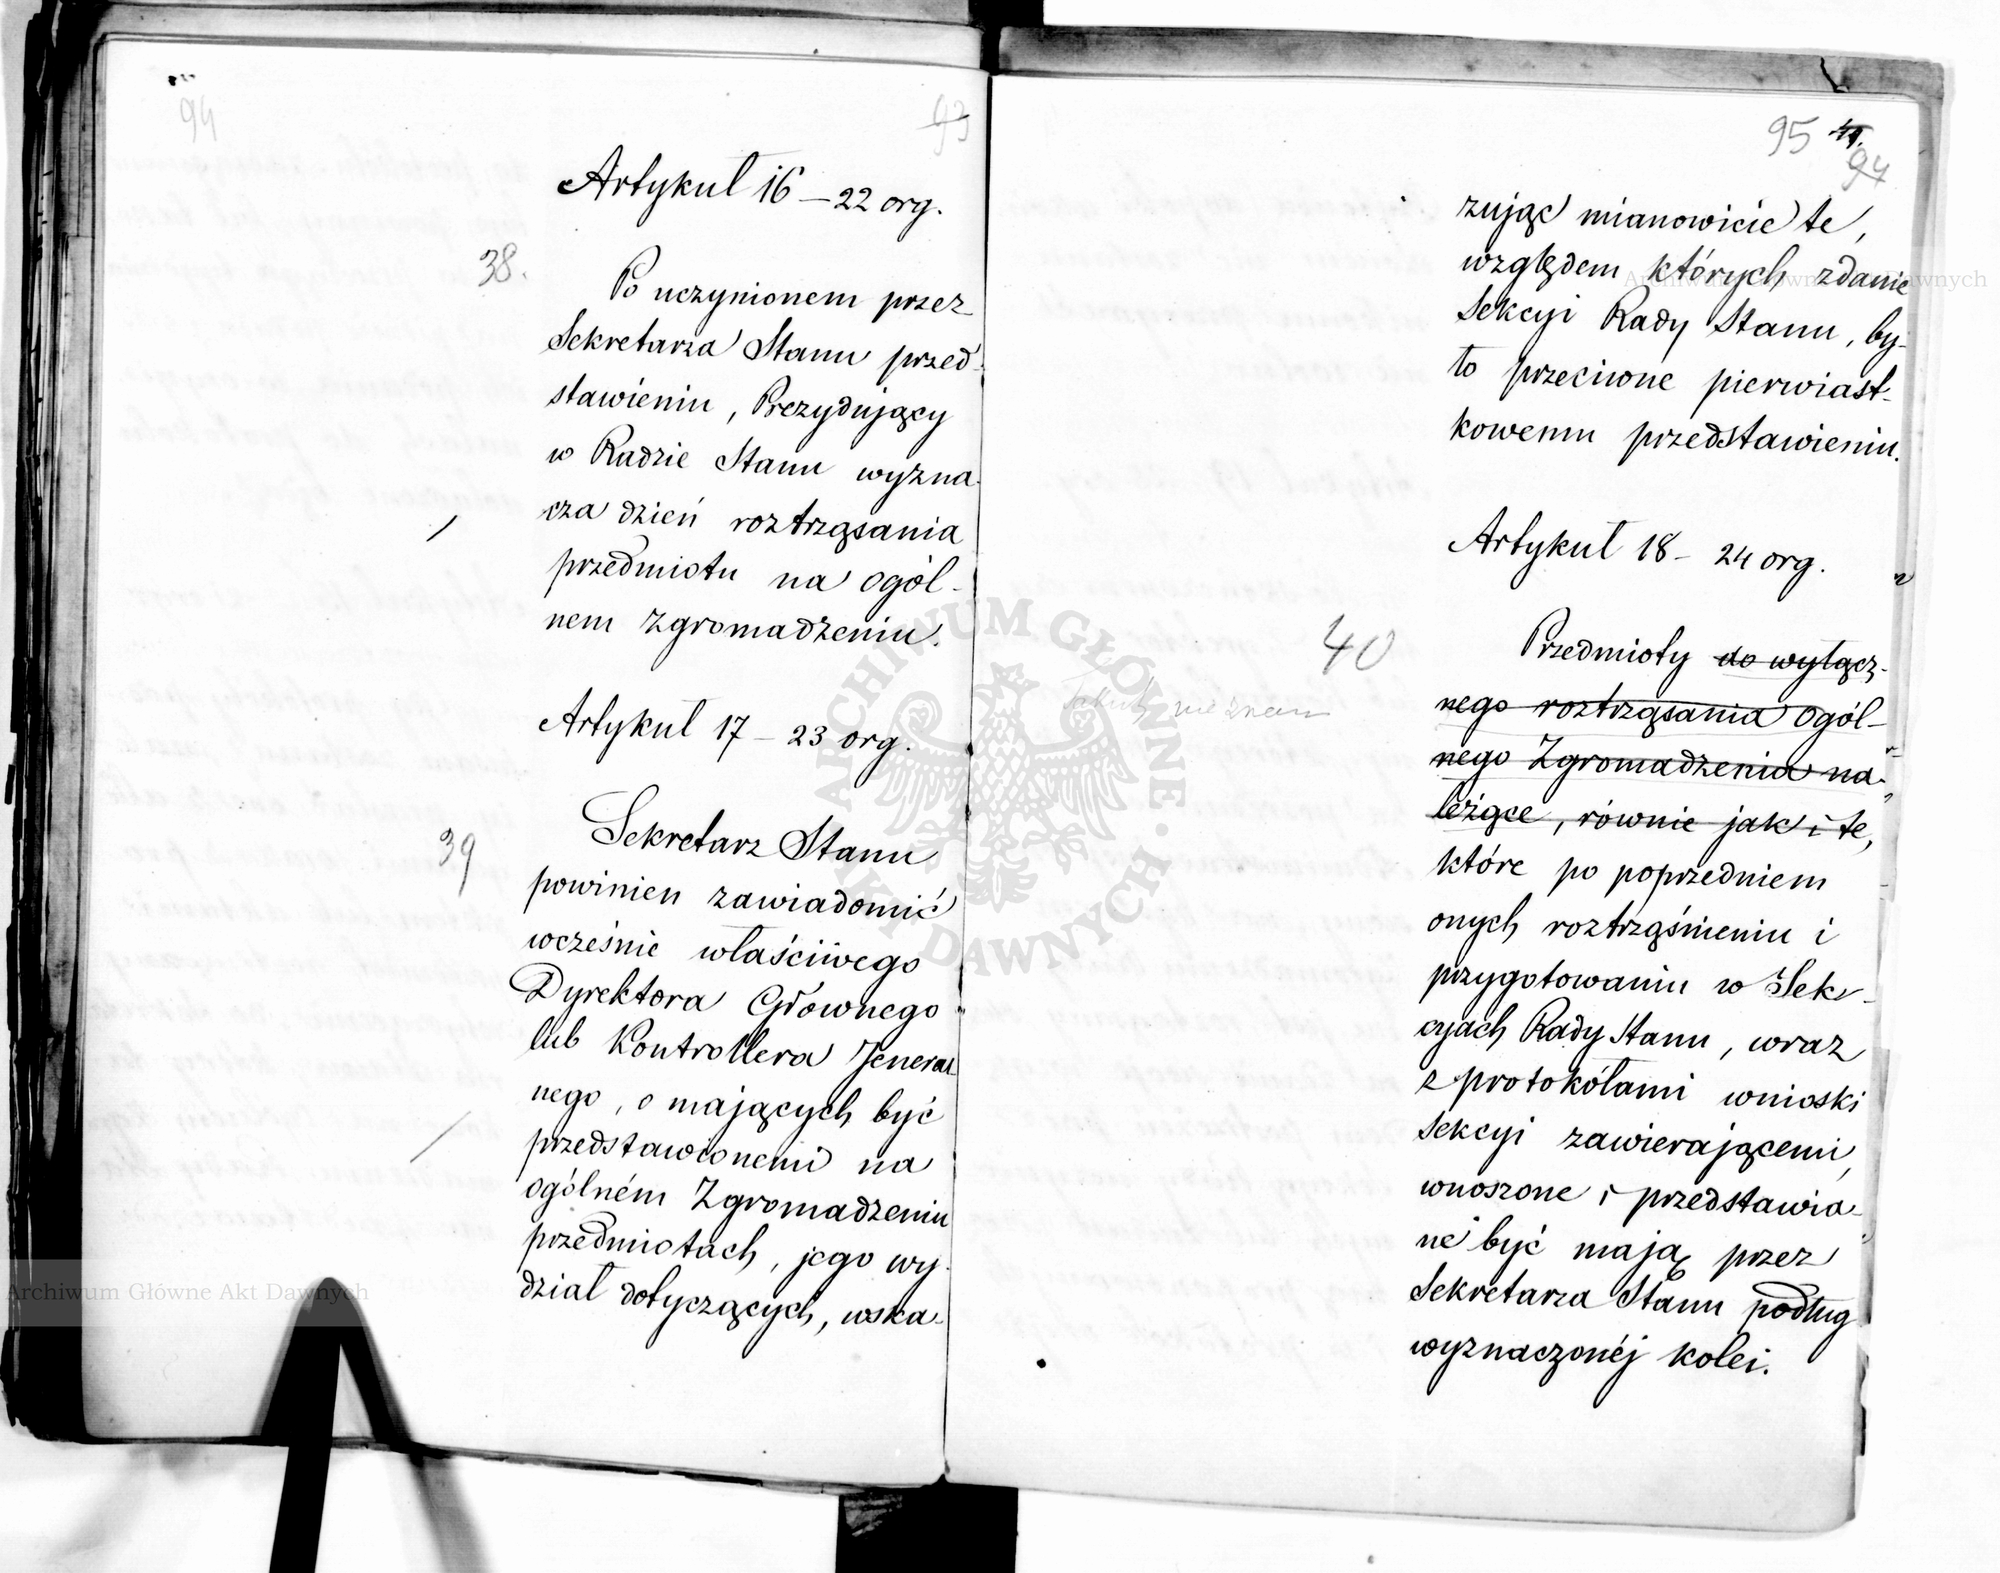 94
93
Artykuł 16 – 22 org.
38.
Po uczynionem przez
Sekretarza Stanu przed-
stawieniu, Prezydujący
w Radzie Stanu wyzna-
cza dzień roztrząsania
przedmiotu na ogól-
nem Zgromadzeniu.
Artykuł 17 – 23 org.
39
Sekretarz Stanu
powinien zawiadomić
wcześnie właściwego
Dyrektora Głównego
lub Kontrollera Jeneral
nego, o mających być
przedstawionemi na
ogólném Zgromadzeniu
przedmiotach, jego wy-
dział dotyczących, wska-
95
94
zując mianowicie te,
względem których zdanie
Sekcyi Rady Stanu, by-
ło przeciwne pierwiast-
kowemu przedstawieniu.
Artykuł 18 – 24 org.
40
Przedmioty do wyłącz-
nego roztrząsania ogól-
nego Zgromadzenia na-
leżące, równie jak i te,
które po poprzedniem
onych roztrząśnieniu i
przygotowaniu w Sek-
cyjach Rady Stanu, wraz
z protokółami wnioski
Sekcyi zawierającemi,
wnoszone i przedstawia-
né być mają przez
Sekretarza Stanu podług
wyznaczonéj kolei.
ARCHIWUM GŁÓWNE AKT DAWNYCH
Archiwum Główne Akt Dawnych
Archiwum Główne Akt Dawnych